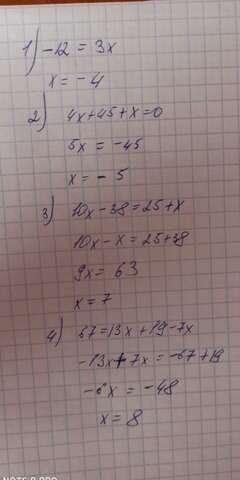 1) -12 = 3x
x = -4
2) 4x+45+x=0
5x = -45
x = - 5
3) 10x-38=25+x
10x-x=25+38
9x= 63
x=7
4) 67=13x+19-7x
-13x+7x=-67+19
-6x = -48
x=8